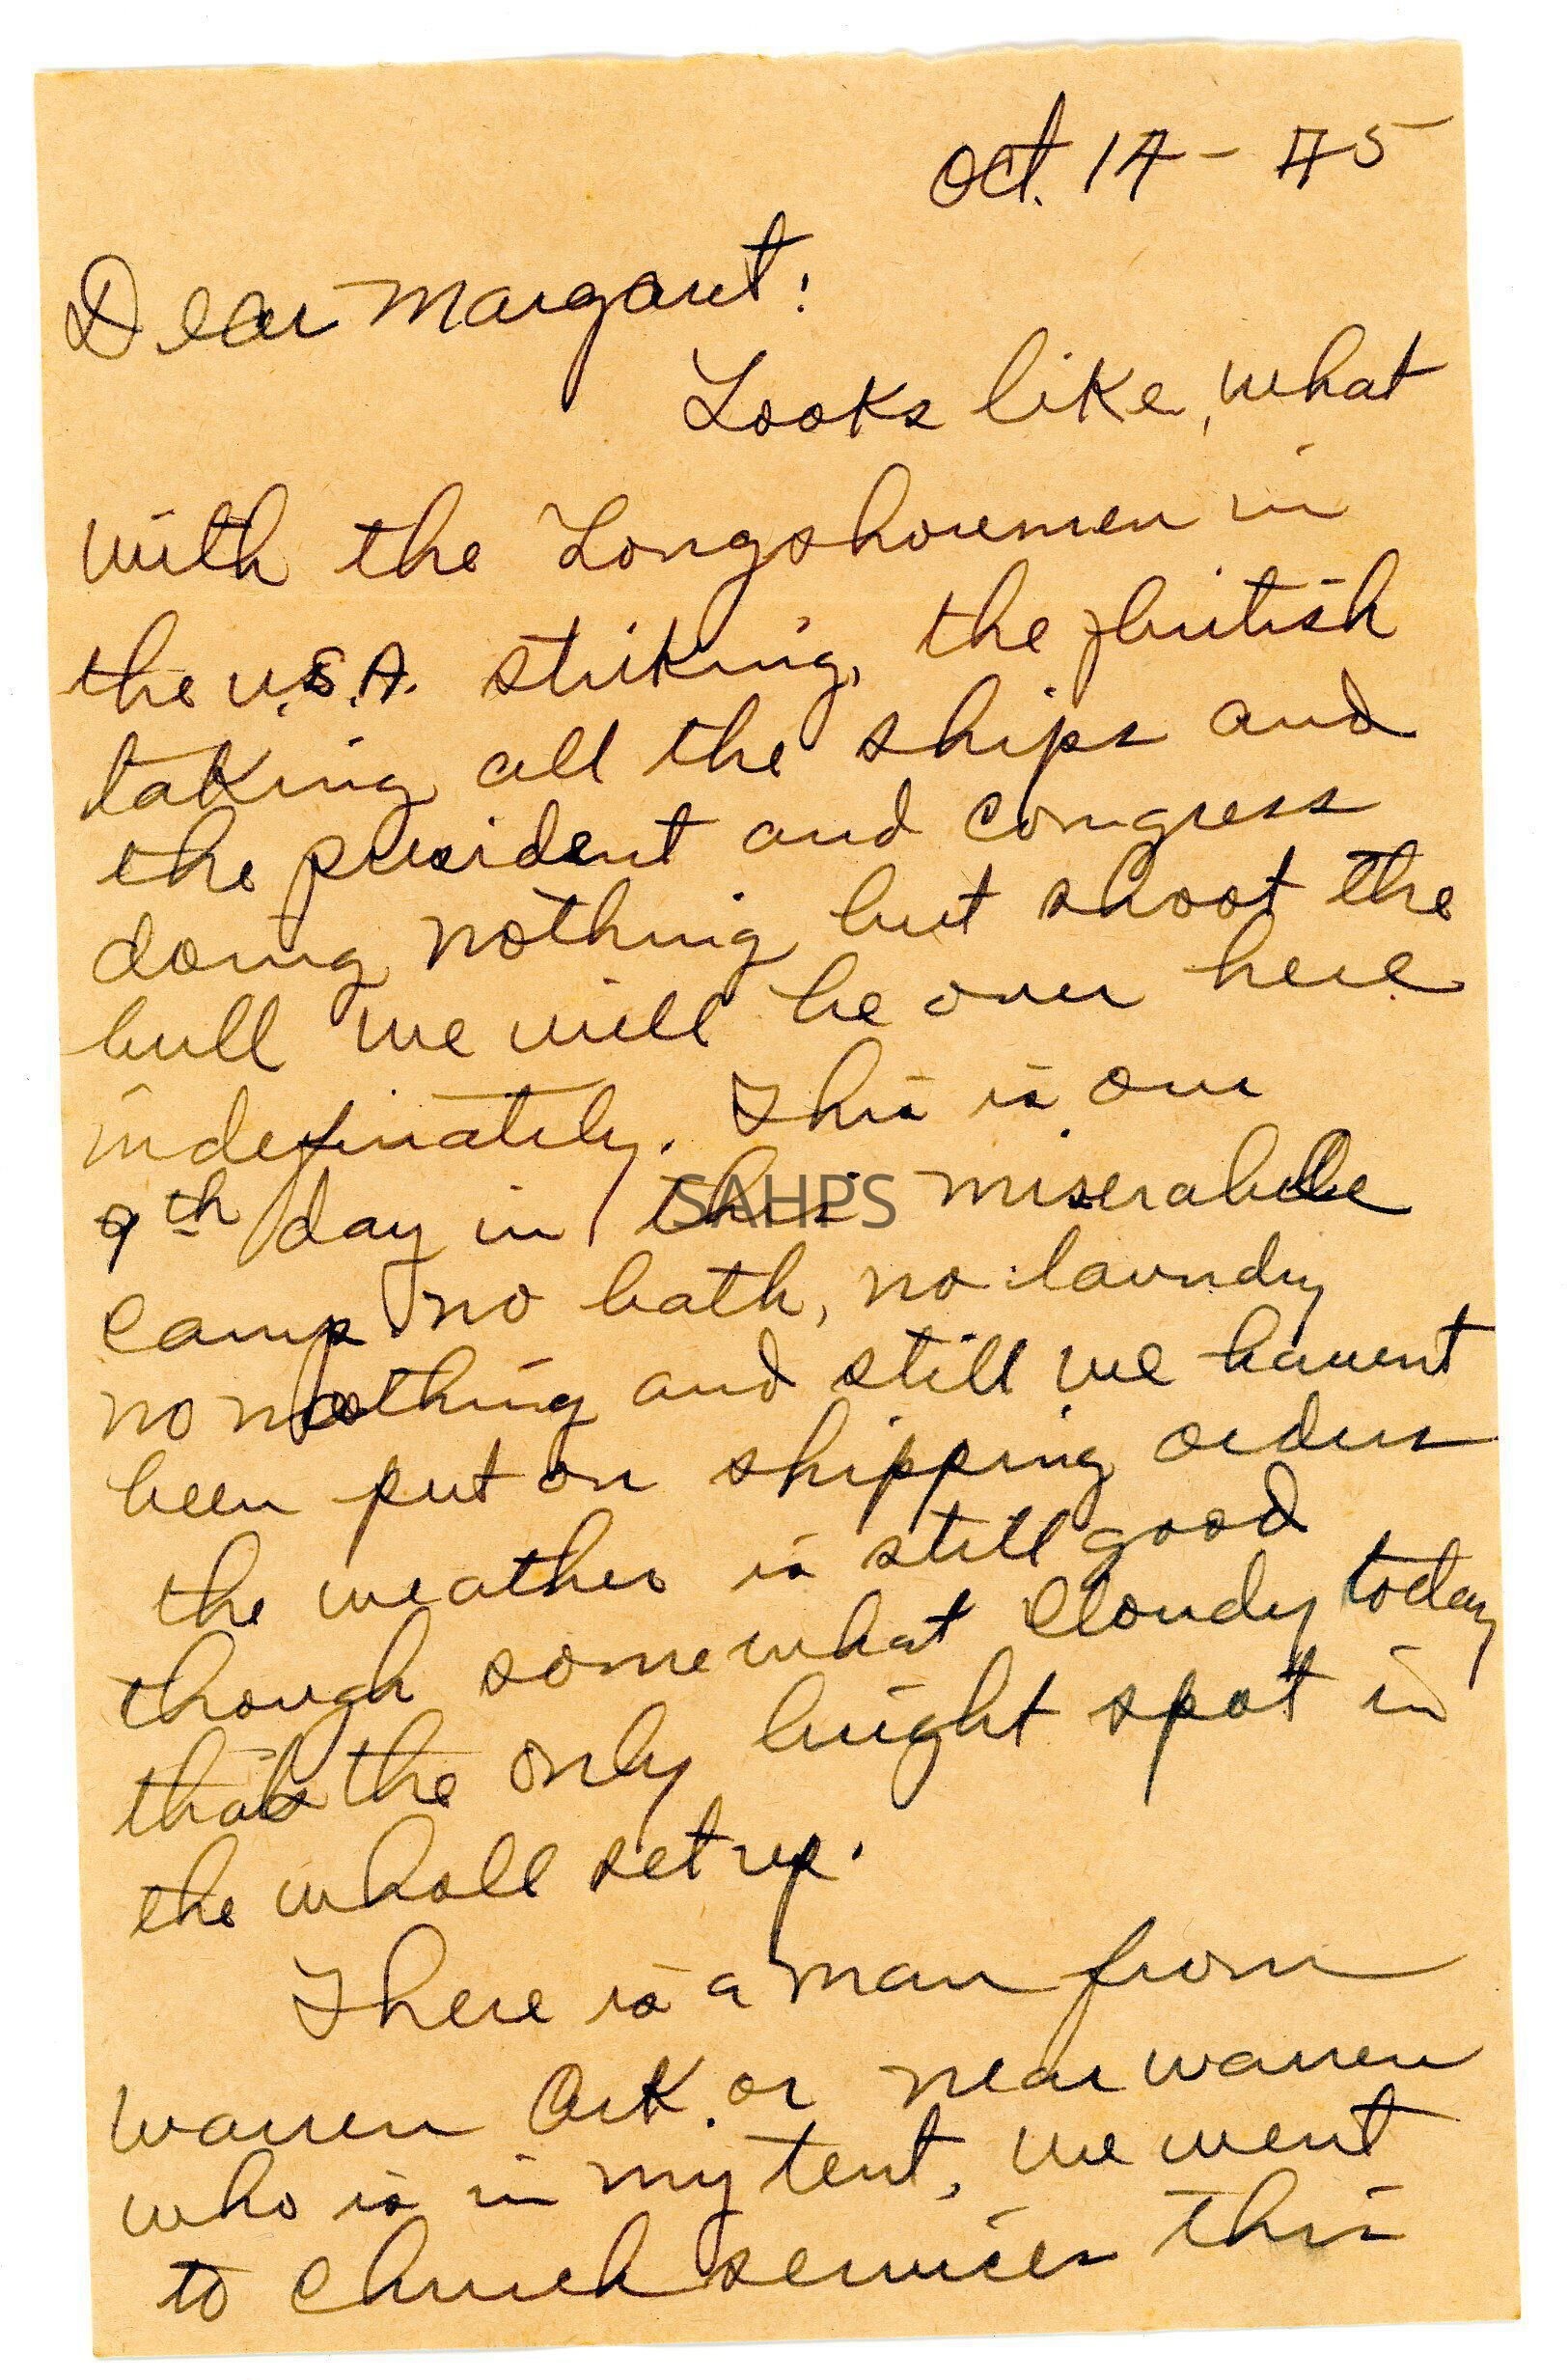 Oct. 14 - 45
Dear Margaret:
Looks like, what
with the Longshoremen in
the U.S.A. striking, the british
taking all the ships and
the president and congress
doing nothing but shoot the
bull we will be over here
indefinately. This is our
9th day in this miserable
SAHPS
camp no bath, no laundry
no nothing and still we havent
been put on shipping orders
the weather is still good
though somewhat cloudy today
thats the only bright spot in
the whole setup.
There is a man from
Warren Ark. or near Warren
who is in my tent, we went
to church services this